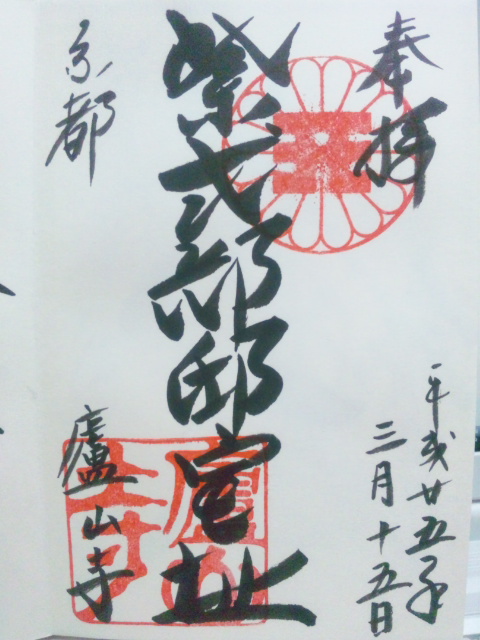 奉拝
平成廿五年
三月十五日
紫式部邸宅址
京都
廬山寺
廬山寺